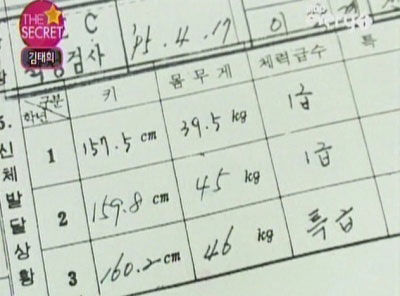 THE SECRET
김태희
C
검사 '95. 4. 17
구분 키 몸무게 체력급수 특
학년
5. 신체발달상황
1 157.5 cm 39.5 kg 1급
2 159.8 cm 45 kg 1급
3 160.2 cm 46 kg 특급